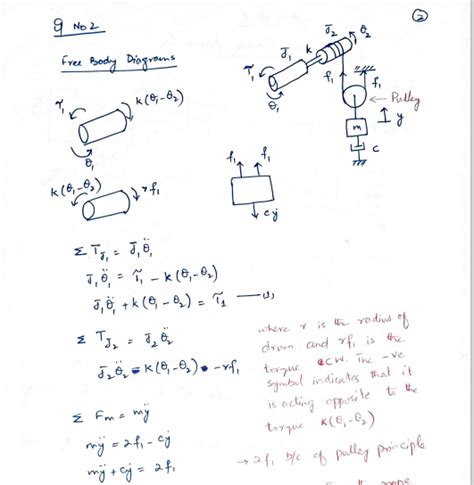 ②
Q No 2
Free Body Diagrams
J₁ k J₂ θ₂
τ₁ θ₁ f₁ f₁
← Pulley
y
m
c
τ₁ k(θ₁-θ₂)
θ₁
k(θ₁-θ₂) rf₁
f₁ f₁
cẏ
Σ T_J₁ = J₁θ̈₁
J₁θ̈₁ = τ₁ - k(θ₁-θ₂)
J₁θ̈₁ + k(θ₁-θ₂) = τ₁ —(1)
Σ T_J₂ = J₂θ̈₂
J₂θ̈₂ = k(θ₁-θ₂) - rf₁
where r is the radius of
drum and rf₁ is the
torque CW. The -ve
symbol indicates that it
is acting opposite to the
torque k(θ₁-θ₂)
Σ Fm = mÿ
mÿ = 2f₁ - cẏ
mÿ + cẏ = 2f₁
→ 2f₁ b/c of pulley principle
the rope